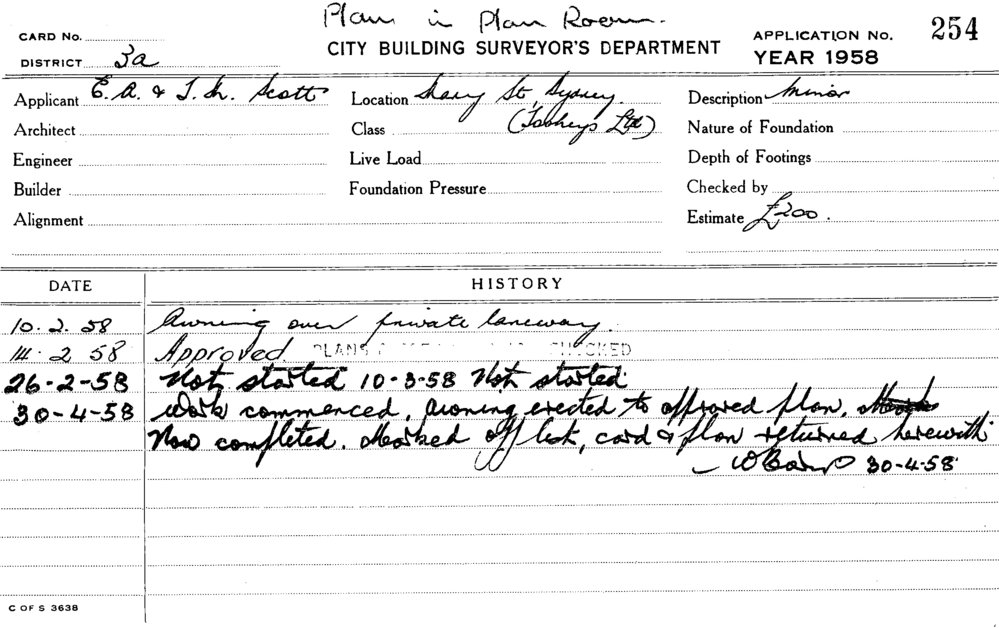 Plan in Plan Room.
CARD No.
CITY BUILDING SURVEYOR'S DEPARTMENT
APPLICATION No. 254
DISTRICT 3a
YEAR 1958
Applicant E. A. & T. M. Scott
Location Mary St, Sydney.
Description Minor
Architect
Class (Tooheys Ltd)
Nature of Foundation
Engineer
Live Load
Depth of Footings
Builder
Foundation Pressure
Checked by
Alignment
Estimate £200.
DATE HISTORY
10. 2. 58 Awning over private laneway.
14. 2 58 Approved. PLANS CHECKED
26-2-58 Not started 10-3-58 Not started
30-4-58 Work commenced. Awning erected to approved plan.
Now completed. Marked off list, card & plan returned herewith
30-4-58
C OF S 3638